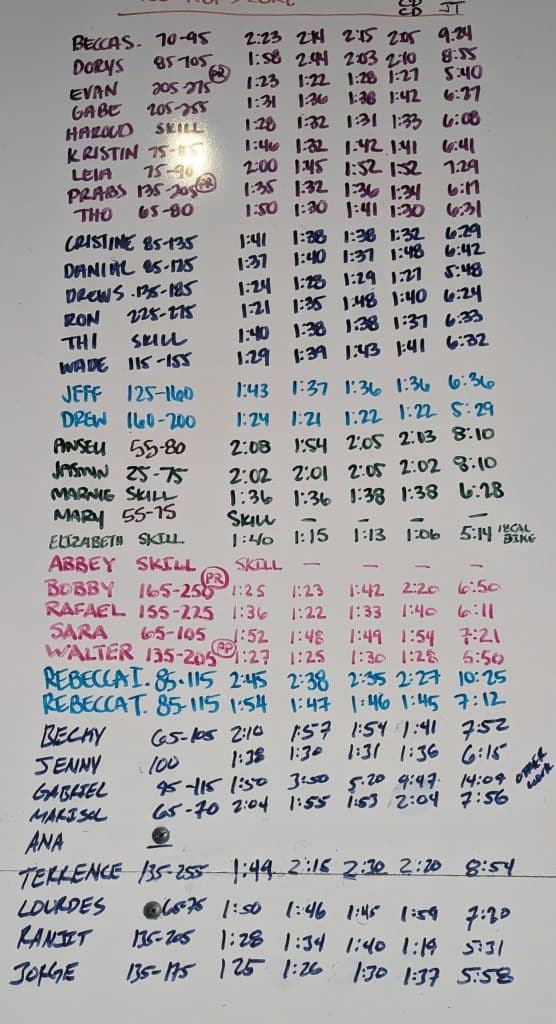 BECCAS. 70-95 2:23 2:14 2:15 2:05 9:24
DORYS 85-105 1:58 2:44 2:03 2:10 8:55
EVAN 205-275 PR 1:23 1:22 1:28 1:27 5:40
GABE 205-255 1:31 1:36 1:38 1:42 6:27
HAROLD SKILL 1:28 1:32 1:31 1:33 6:08
KRISTIN 75-85 1:46 1:32 1:42 1:41 6:41
LEIA 75-90 2:00 1:45 1:52 1:52 7:29
PRABS 135-205 PR 1:35 1:32 1:36 1:34 6:17
THO 65-80 1:50 1:30 1:41 1:30 6:31
CRISTINE 85-135 1:41 1:38 1:38 1:32 6:29
DANIAL 85-125 1:37 1:40 1:37 1:48 6:42
DREWS. 135-185 1:24 1:28 1:29 1:27 5:48
RON 225-275 1:21 1:35 1:48 1:40 6:24
THI SKILL 1:40 1:38 1:38 1:37 6:33
WADE 115-155 1:29 1:39 1:43 1:41 6:32
JEFF 125-160 1:43 1:37 1:36 1:36 6:36
DREW 160-200 1:24 1:21 1:22 1:22 5:29
ANSELL 55-80 2:08 1:54 2:05 2:03 8:10
JASMIN 25-75 2:02 2:01 2:05 2:02 8:10
MARNIE SKILL 1:36 1:36 1:38 1:38 6:28
MARY 55-75 SKILL — — — —
ELIZABETH SKILL 1:40 1:15 1:13 1:06 5:14 18CAL BIKE
ABBEY SKILL SKILL — — — —
BOBBY 165-250 PR 1:25 1:23 1:42 2:20 6:50
RAFAEL 155-225 1:36 1:22 1:33 1:40 6:11
SARA 65-105 1:52 1:48 1:49 1:54 7:21
WALTER 135-205 1:27 1:25 1:30 1:28 5:50
REBECCA I. 85-115 2:45 2:38 2:35 2:27 10:25
REBECCA T. 85-115 1:54 1:47 1:46 1:45 7:12
BECKY 65-105 2:10 1:57 1:54 1:41 7:52
JENNY 100 1:38 1:30 1:31 1:36 6:15
GABRIEL 95-115 1:50 3:50 5:20 4:47 14:09 OTHER WORK
MARISOL 65-70 2:04 1:55 1:53 2:04 7:56
ANA —
TERRENCE 135-255 1:49 2:15 2:30 2:20 8:54
LOURDES 65-75 1:50 1:46 1:45 1:59 7:20
RANJIT 135-205 1:28 1:34 1:40 1:19 5:31
JORGE 135-175 1 25 1:26 1:30 1:37 5:58